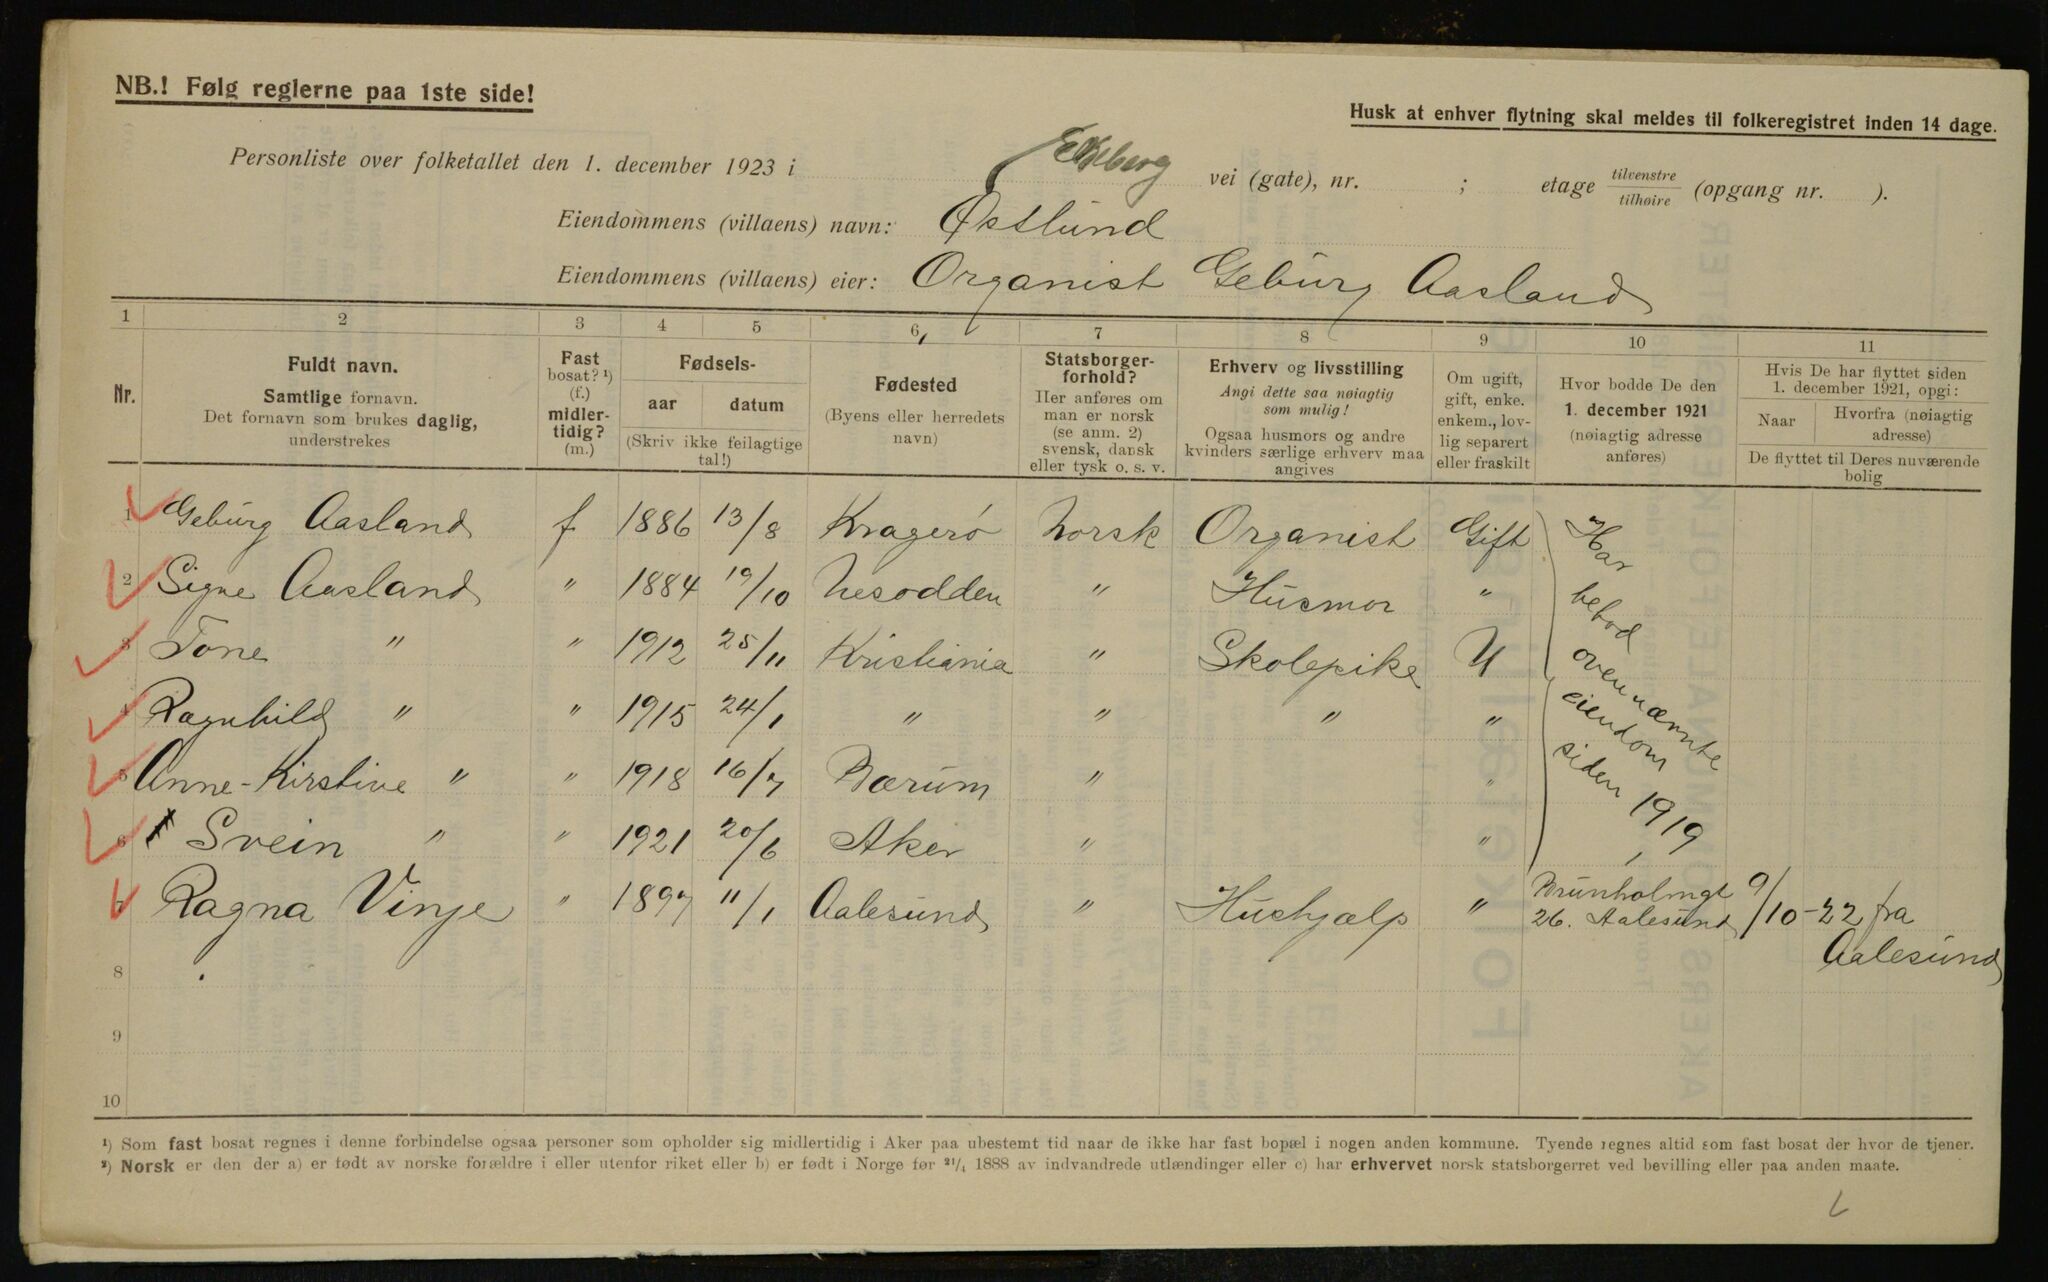 NB.! Følg reglerne paa 1ste side!
Husk at enhver flytning skal meldes til folkeregistret inden 14 dage.
Personliste over folketallet den 1. december 1923 i Ekeberg vei (gate), nr. ; etage tilvenstre/tilhøire (opgang nr. ).
Eiendommens (villaens) navn: Østlund
Eiendommens (villaens) eier: Organist Geburg Aasland
1 2 3 4 5 6 7 8 9 10 11
Nr.
Fuldt navn.
Samtlige fornavn.
Det fornavn som brukes daglig,
understrekes
Fast
bosat? ¹)
(f.)
midler-
tidig?
(m.)
Fødsels-
aar datum
(Skriv ikke feilagtige
tal!)
Fødested
(Byens eller herredets
navn)
Statsborger-
forhold?
Her anføres om
man er norsk
(se anm. 2)
svensk, dansk
eller tysk o. s. v.
Erhverv og livsstilling
Angi dette saa nøiagtig
som mulig!
Ogsaa husmors og andre
kvinders særlige erhverv maa
angives
Om ugift,
gift, enke.
enkem., lov-
lig separert
eller fraskilt
Hvor bodde De den
1. december 1921
(nøiagtig adresse
anføres)
Hvis De har flyttet siden
1. december 1921, opgi:
Naar Hvorfra (nøiagtig
adresse)
De flyttet til Deres nuværende
bolig
1 Geburg Aasland f 1886 13/8 Kragerø Norsk Organist Gift
2 Signe Aasland " 1884 19/10 Nesodden " Husmor "
3 Tone " " 1912 25/11 Kristiania " Skolepike U
4 Ragnhild " " 1915 24/1 " " " "
5 Anne-Kirstine " " 1918 16/7 Bærum " "
6 Svein " " 1921 20/6 Aker " "
Har
bebod
ovennævnte
eiendom
siden 1919
7 Ragna Vinje " 1897 11/1 Aalesund " Hushjælp " Brunholmgt 9/10-22 fra
26. Aalesund
Aalesund
8
9
10
¹) Som fast bosat regnes i denne forbindelse ogsaa personer som opholder sig midlertidig i Aker paa ubestemt tid naar de ikke har fast bopæl i nogen anden kommune. Tyende regnes altid som fast bosat der hvor de tjener.
²) Norsk er den der a) er født av norske forældre i eller utenfor riket eller b) er født i Norge før 21/4 1888 av indvandrede utlændinger eller c) har erhvervet norsk statsborgerret ved bevilling eller paa anden maate.